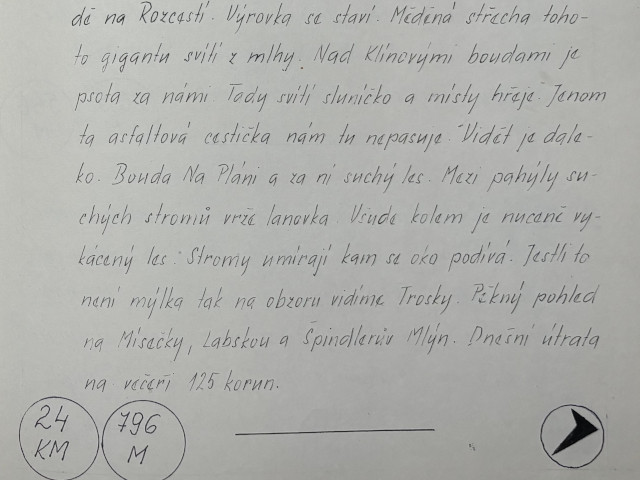 dě na Rozcestí. Výrovka se staví. Měděná střecha toho-
to gigantu svítí z mlhy. Nad Klínovými boudami je
psota za námi. Tady svítí sluníčko a místy hřeje. Jenom
ta asfaltová cestička nám tu nepasuje. Vidět je dale-
ko. Bouda Na Pláni a za ní suchý les. Mezi pahýly su-
chých stromů vrže lanovka. Všude kolem je nuceně vy-
kácený les. Stromy umírají kam se oko podívá. Jestli to
není mýlka tak na obzoru vidíme Trosky. Pěkný pohled
na Mísečky, Labskou a Špindlerův Mlýn. Dnešní útrata
na večeři 125 korun.
24
KM
796
M